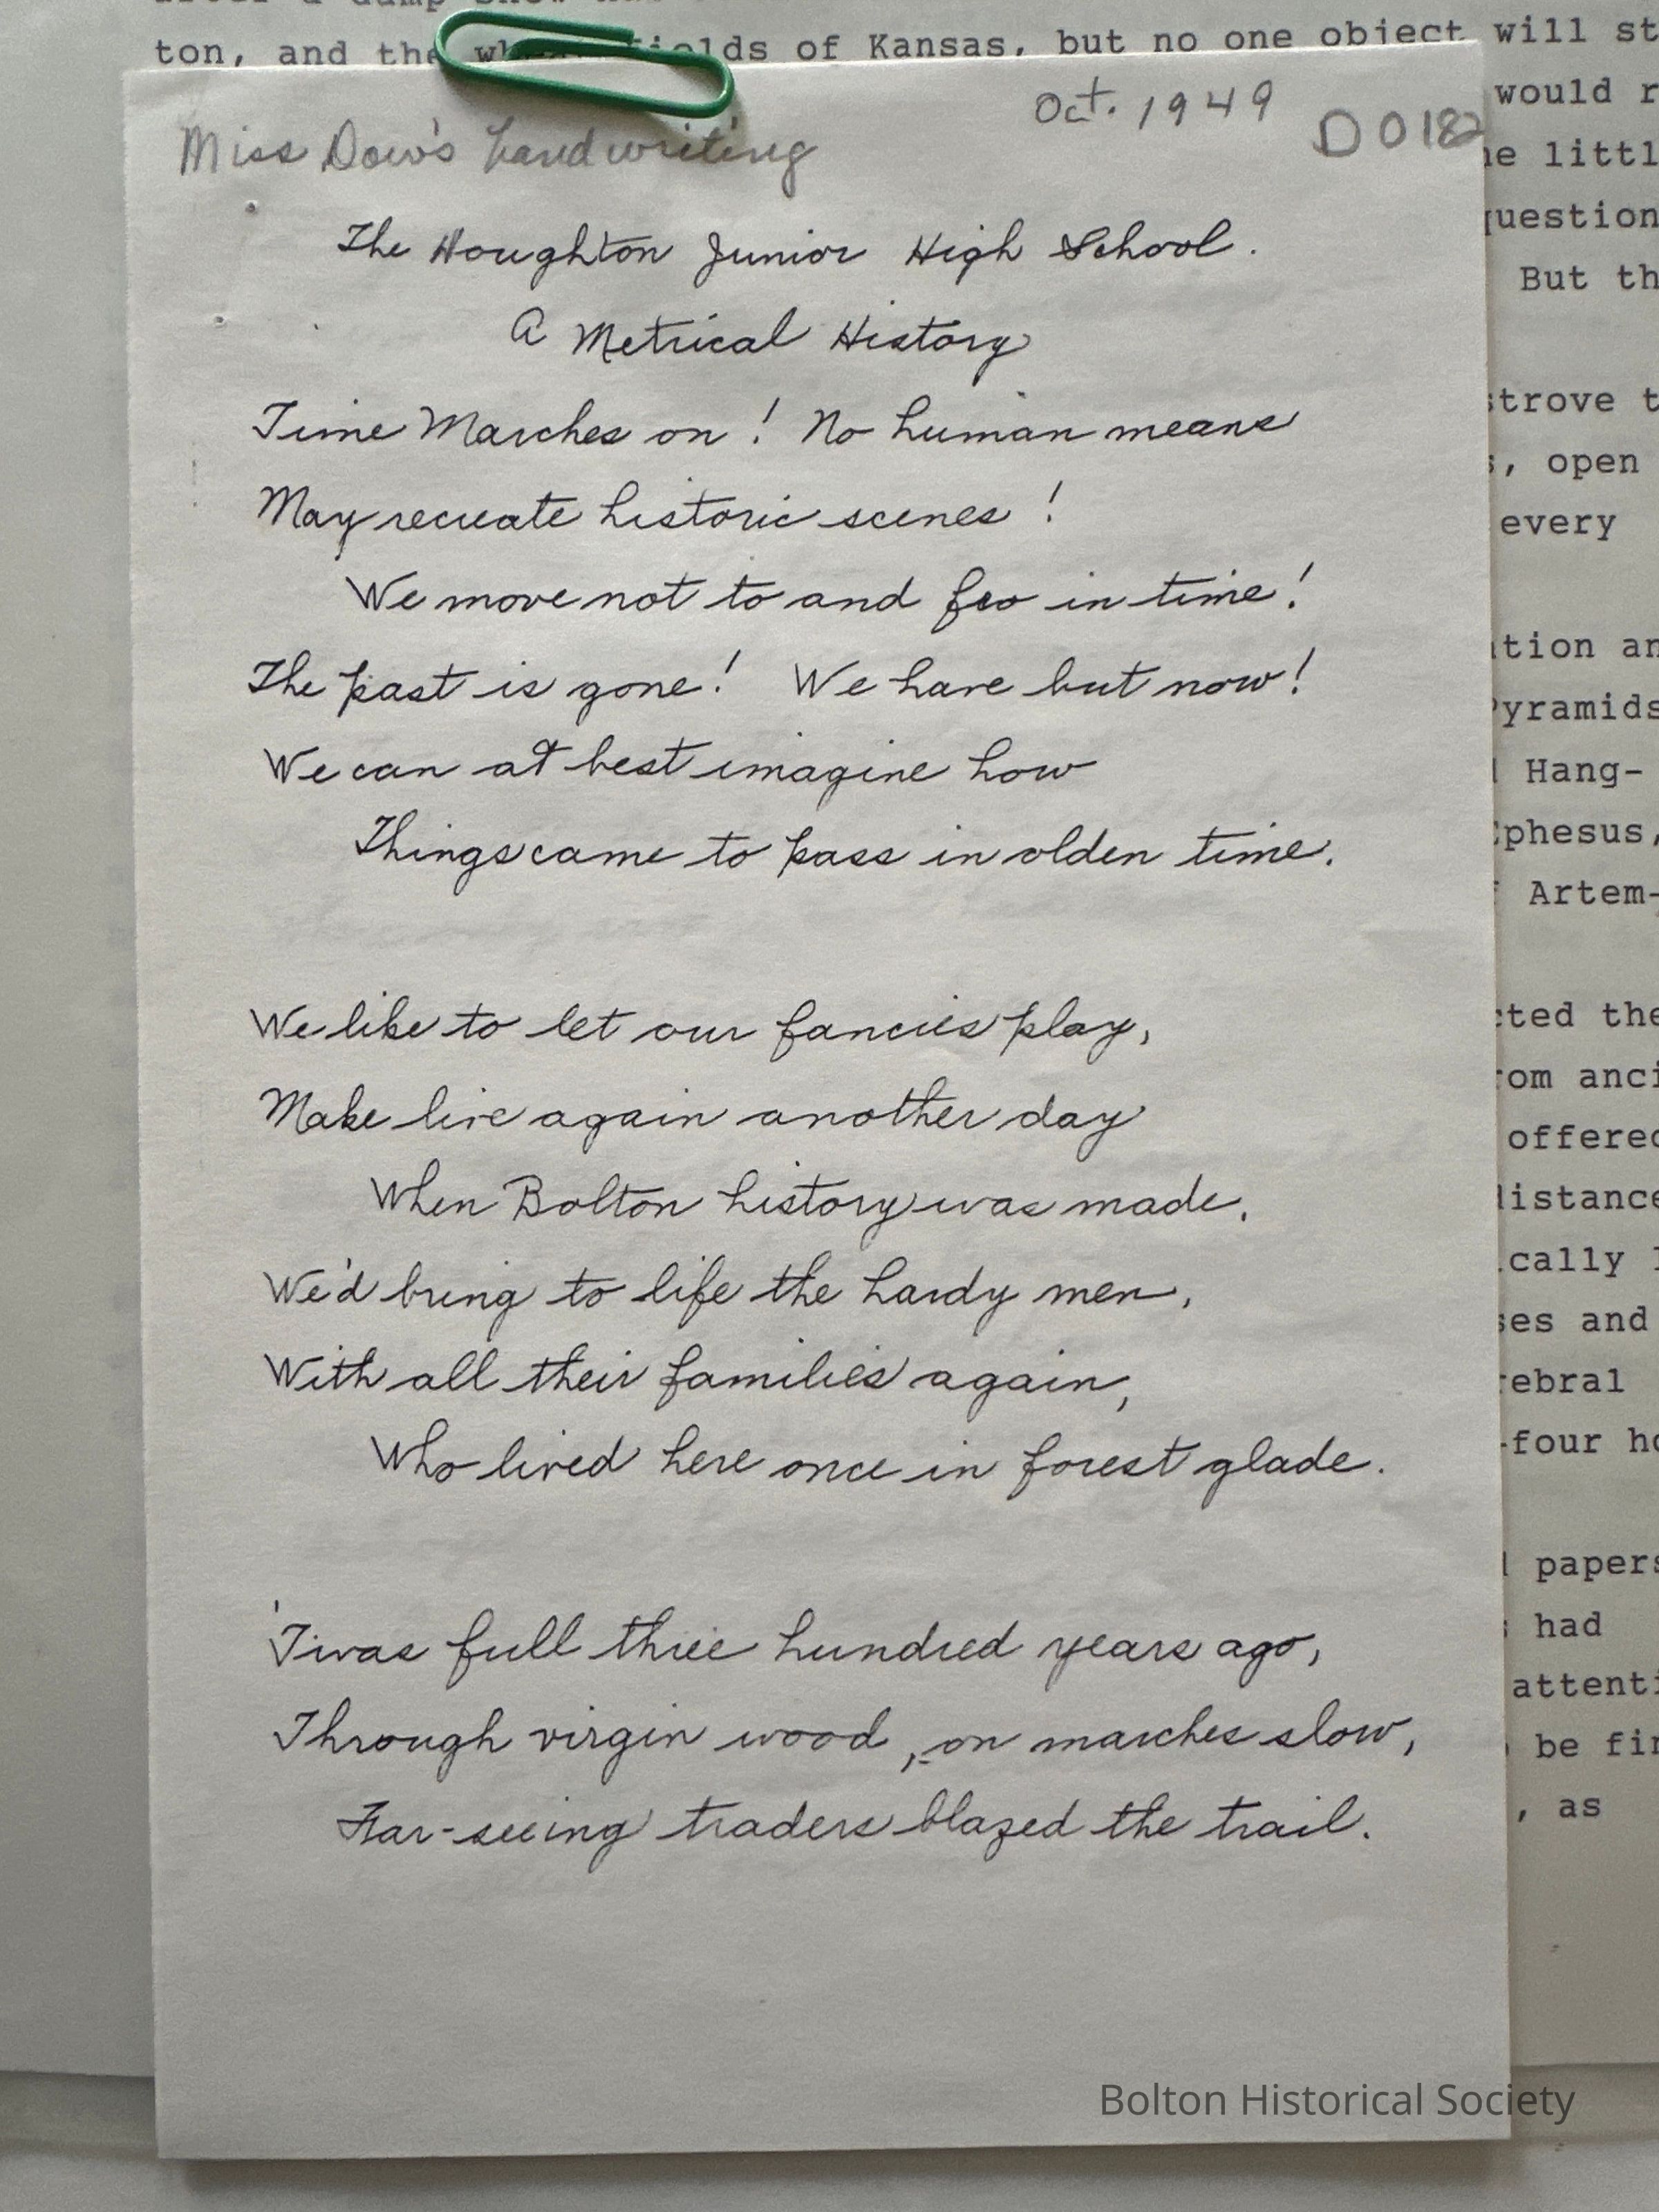 ton, and the fields of Kansas, but no one object will
would
Oct. 1949
D0182
Miss Dow's handwriting
littl
question
The Houghton Junior High School.
But
A Metrical History
Time Marches on! No human means
strove
, open
May recreate historic scenes!
every
We move not to and fro in time!
The past is gone! We have but now!
Pyramids
We can at best imagine how
Hang-
Ephesus,
Things came to pass in olden time.
Artem-
We like to let our fancies play,
the
Make live again another day
offered
When Bolton history was made.
distance
We'd bring to life the hardy men,
and
With all their families again,
Who lived here once in forest glade.
-four
papers
'Twas full three hundred years ago,
had
Through virgin wood, on marches slow,
be
Far-seeing traders blazed the trail.
, as
Bolton Historical Society